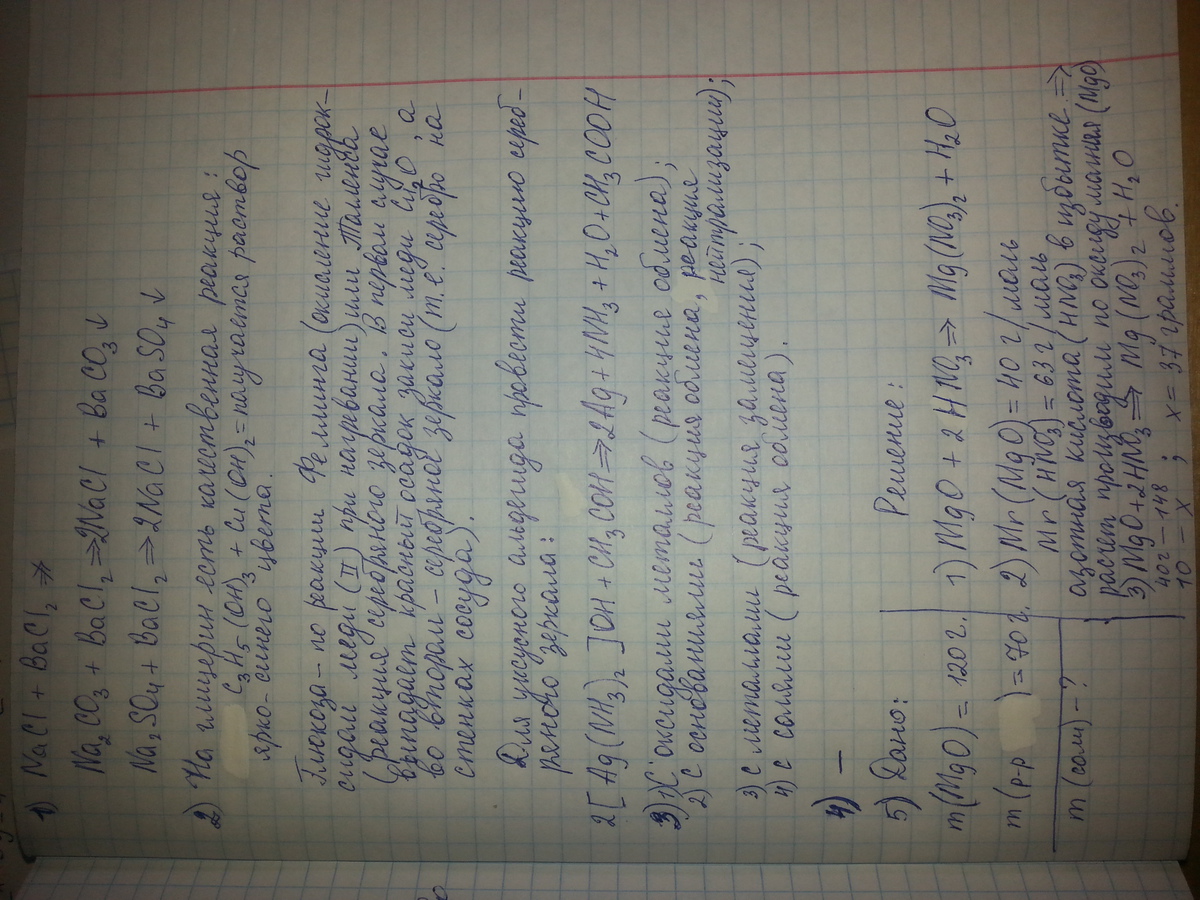 1) NaCl + BaCl₂ ⇏
Na₂CO₃ + BaCl₂ ⇒ 2NaCl + BaCO₃↓
Na₂SO₄ + BaCl₂ ⇒ 2NaCl + BaSO₄↓
2) На глицерин есть качественная реакция:
C₃H₅(OH)₃ + Cu(OH)₂ = получается раствор
ярко-синего цвета.
Глюкоза - по реакции Фелинга (окисление гидрок-
сидом меди (II) при нагревании) или Толленса
(реакция серебряного зеркала. В первом случае
выпадает красный осадок закиси меди Cu₂O, а
во втором - серебряное зеркало (т.е. серебро на
стенках сосуда).
Для уксусного альдегида провести реакцию сереб-
ряного зеркала:
2[Ag(NH₃)₂]OH + CH₃COH ⇒ 2Ag + 4NH₃ + H₂O + CH₃COOH
3) 1) С оксидами металов (реакция обмена);
2) с основаниями (реакция обмена, реакция
нейтрализации);
3) с металлами (реакция замещения);
4) с солями (реакция обмена).
4) —
5) Дано: Решение:
m(MgO) = 120г. 1) MgO + 2HNO₃ ⇒ Mg(NO₃)₂ + H₂O
m(р-р ) = 70г. 2) Mr(MgO) = 40 г/моль
Mr(HNO₃) = 63 г/моль
m(соли) - ? азотная кислота (HNO₃) в избытке ⇒
расчет производим по оксиду магния (MgO)
3) MgO + 2HNO₃ ⇒ Mg(NO₃)₂ + H₂O
40г — 148 ; x = 37 граммов.
10 — x